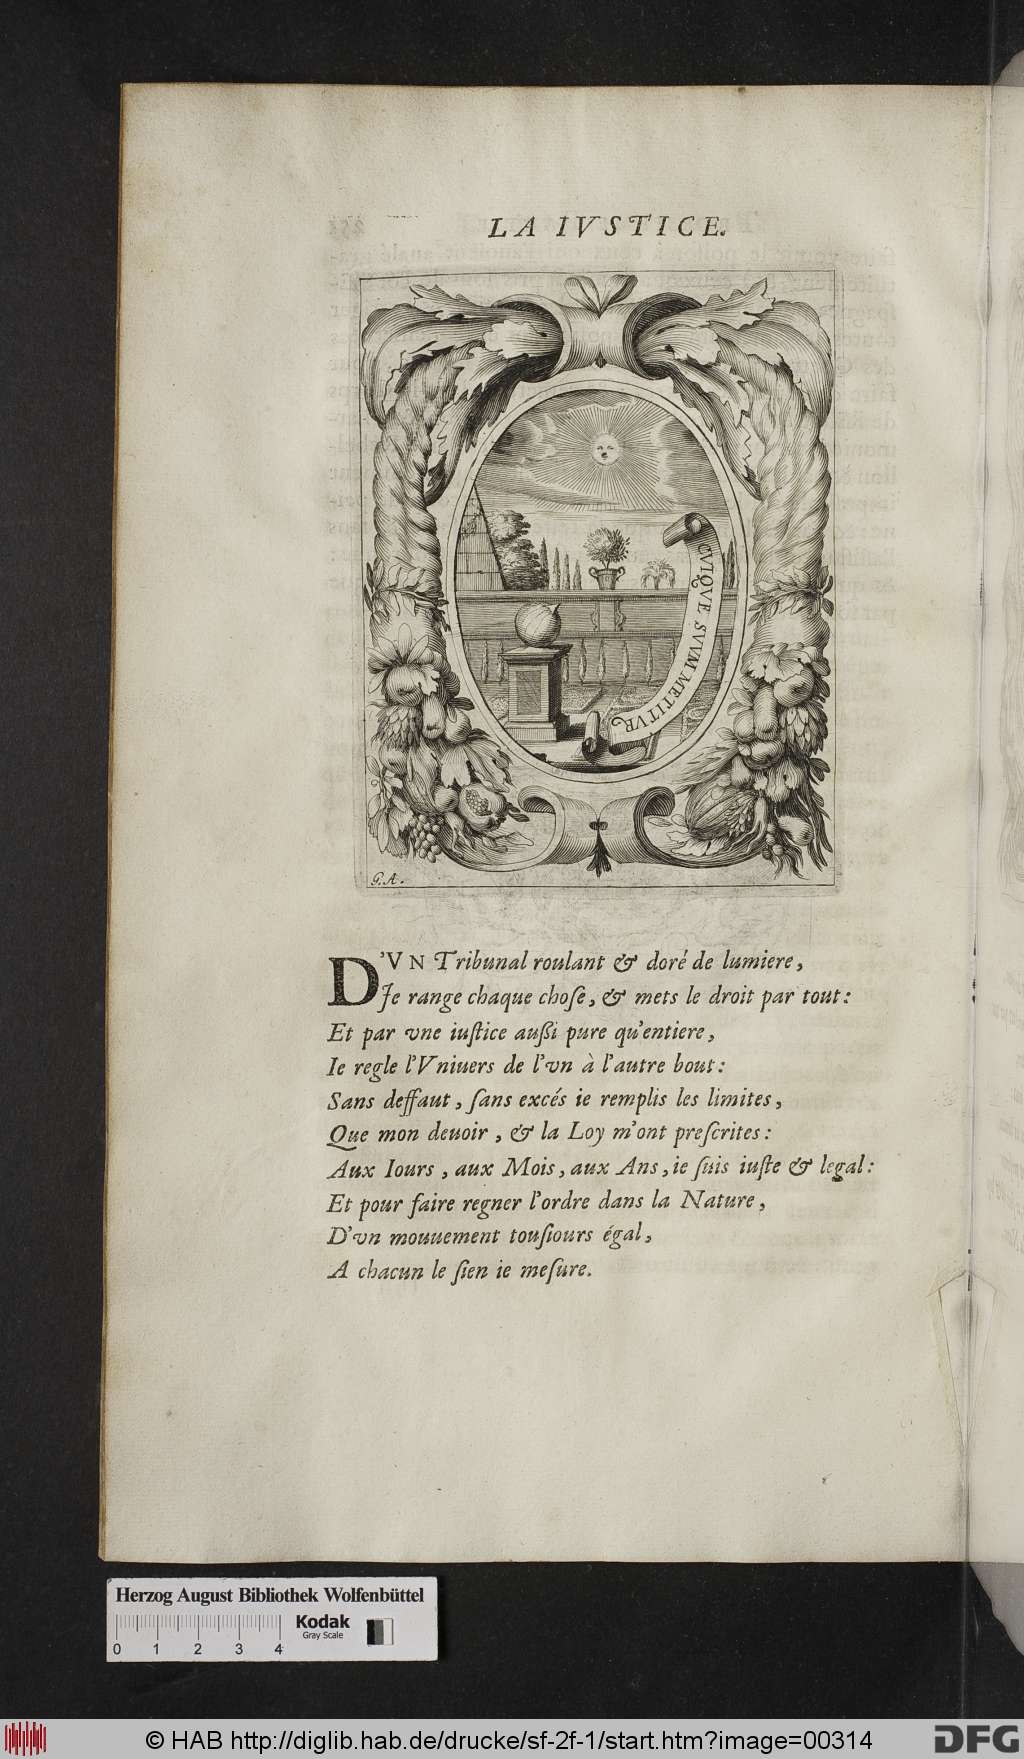 LA IVSTICE.
CVIQVE SVVM METITVR
G.A.
D'VN Tribunal roulant & doré de lumiere,
Je range chaque choſe, & mets le droit par tout:
Et par vne iuſtice außi pure qu'entiere,
Ie regle l'Vniuers de l'vn à l'autre bout:
Sans deffaut, ſans excés ie remplis les limites,
Que mon deuoir, & la Loy m'ont preſcrites:
Aux Iours, aux Mois, aux Ans, ie ſuis iuſte & legal:
Et pour faire regner l'ordre dans la Nature,
D'vn mouuement touſiours égal,
A chacun le ſien ie meſure.
Herzog August Bibliothek Wolfenbüttel
Kodak
Gray Scale
0 1 2 3 4
© HAB http://diglib.hab.de/drucke/sf-2f-1/start.htm?image=00314
DFG